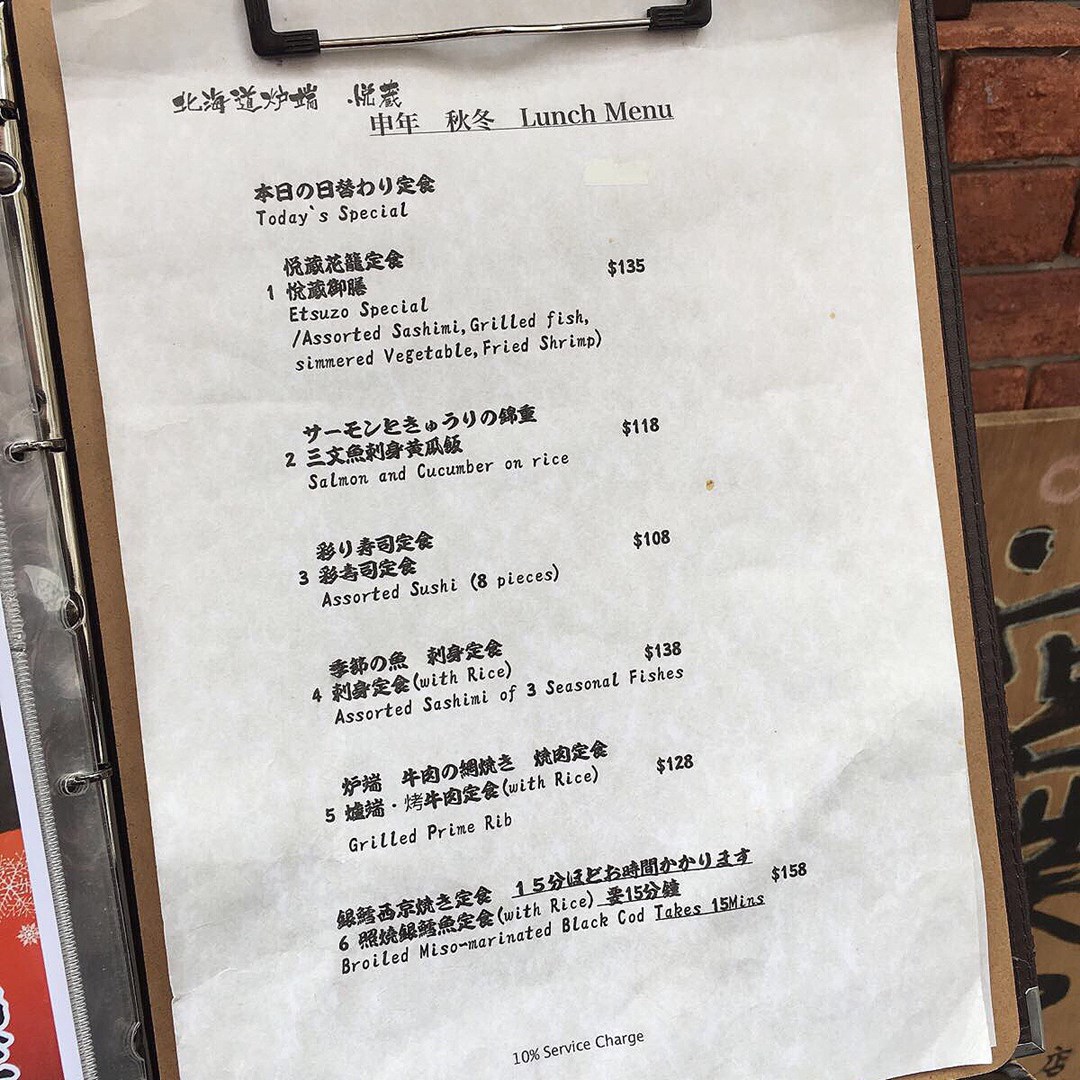 北海道炉端 悦蔵
申年 秋冬 Lunch Menu
本日の日替わり定食
Today`s Special
悦蔵花籠定食 $135
1 悦蔵御膳
Etsuzo Special
/Assorted Sashimi,Grilled fish,
simmered Vegetable,Fried Shrimp)
サーモンときゅうりの錦重 $118
2 三文魚刺身黄瓜飯
Salmon and Cucumber on rice
彩り寿司定食 $108
3 彩寿司定食
Assorted Sushi (8 pieces)
季節の魚 刺身定食 $138
4 刺身定食(with Rice)
Assorted Sashimi of 3 Seasonal Fishes
炉端 牛肉の網焼き 焼肉定食 $128
5 爐端・烤牛肉定食(with Rice)
Grilled Prime Rib
銀鱈西京焼き定食 15分ほどお時間かかります $158
6 照焼銀鱈魚定食(with Rice) 要15分鐘
Broiled Miso-marinated Black Cod Takes 15Mins
10% Service Charge
店